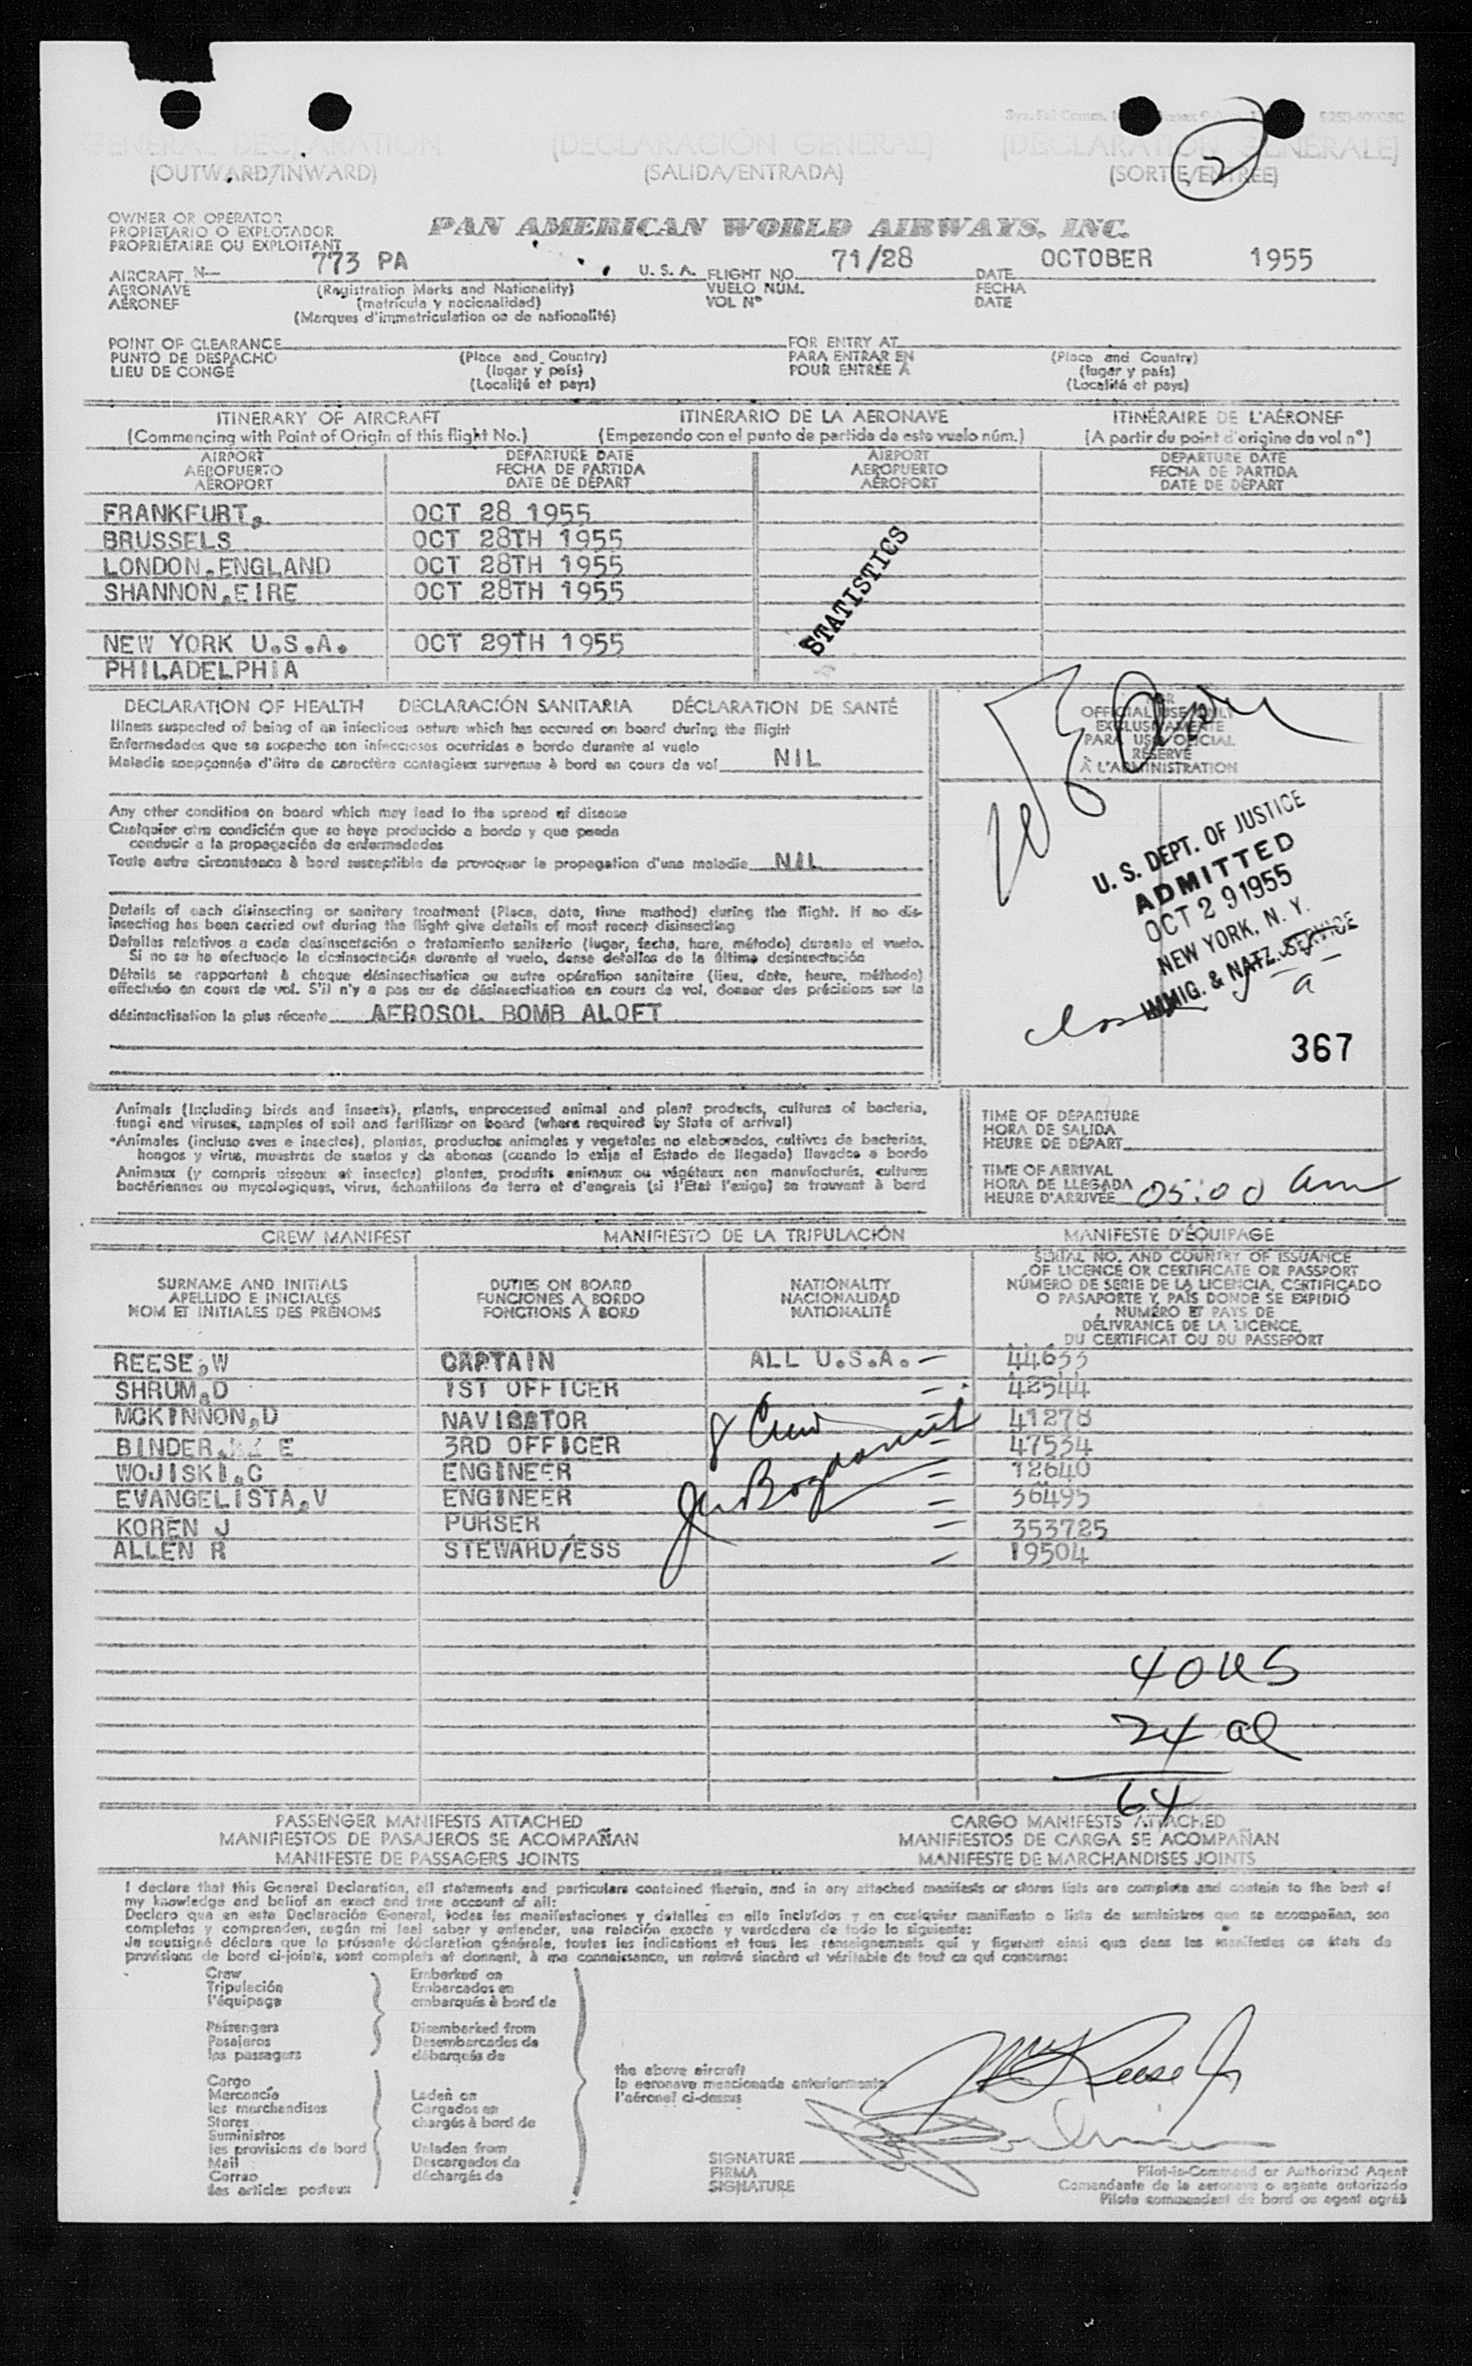 GENERAL DECLARATION (DECLARACIÓN GENERAL) (DECLARATION GÉNÉRALE)
(OUTWARD/INWARD) (SALIDA/ENTRADA) (SORTIE/ENTRÉE)
2
OWNER OR OPERATOR
PROPIETARIO O EXPLOTADOR
PROPRIÉTAIRE OU EXPLOITANT
PAN AMERICAN WORLD AIRWAYS, INC.
AIRCRAFT N— 773 PA U. S. A. FLIGHT NO. 71/28 DATE OCTOBER 1955
AERONAVE (Registration Marks and Nationality) VUELO NÚM. FECHA
AÉRONEF (matrícula y nacionalidad) VOL N° DATE
(Marques d'immatriculation os de nationalité)
POINT OF CLEARANCE FOR ENTRY AT
PUNTO DE DESPACHO (Place and Country) PARA ENTRAR EN (Place and Country)
LIEU DE CONGÉ (lugar y país) POUR ENTRÉE À (lugar y país)
(Localité et pays) (Localité et pays)
ITINERARY OF AIRCRAFT ITINERARIO DE LA AERONAVE ITINÉRAIRE DE L'AÉRONEF
(Commencing with Point of Origin of this flight No.) (Empezando con el punto de partida de este vuelo núm.) (A partir du point d'origine du vol n°)
AIRPORT DEPARTURE DATE AIRPORT DEPARTURE DATE
AEROPUERTO FECHA DE PARTIDA AEROPUERTO FECHA DE PARTIDA
AÉROPORT DATE DE DÉPART AÉROPORT DATE DE DÉPART
FRANKFURT, OCT 28 1955
BRUSSELS OCT 28TH 1955
LONDON,ENGLAND OCT 28TH 1955
SHANNON,EIRE OCT 28TH 1955
NEW YORK U.S.A. OCT 29TH 1955
PHILADELPHIA
STATISTICS
DECLARATION OF HEALTH DECLARACIÓN SANITARIA DÉCLARATION DE SANTÉ
Illness suspected of being of an infectious nature which has occured on board during the flight
Enfermedades que se sospecha son infecciosas ocurridas a bordo durante al vuelo
Maladie soupçonnée d'être de caractère contagieux survenue à bord en cours de vol NIL
Any other condition on board which may lead to the spread of disease
Cualquier otra condición que se haya producido a bordo y que pueda
conducir a la propagación de enfermedades
Toute autre circonstance à bord susceptible de provoquer la propagation d'une maladie NIL
Details of each disinsecting or sanitary treatment (Place, date, time method) during the flight. If no dis-
insecting has been carried out during the flight give details of most recent disinsecting
Detalles relativos a cada desinsectación o tratamiento sanitario (lugar, fecha, hora, método) durante el vuelo.
Si no se ha efectuado la desinsectación durante el vuelo, dense detalles de la última desinsectación
Détails se rapportant à chaque désinsectisation ou autre opération sanitaire (lieu, date, heure, méthode)
effectuée en cours de vol. S'il n'y a pas eu de désinsectisation en cours de vol, donner des précisions sur la
désinsectisation la plus récente AEROSOL BOMB ALOFT
FOR
OFFICIAL USE ONLY
EXCLUSIVAMENTE
PARA USO OFICIAL
RÉSERVÉ
À L'ADMINISTRATION
U. S. DEPT. OF JUSTICE
ADMITTED
OCT 29 1955
NEW YORK, N. Y.
IMMIG. & NATZ. SERVICE
367
Animals (Including birds and insects), plants, unprocessed animal and plant products, cultures of bacteria,
fungi and viruses, samples of soil and fertilizer on board (where required by State of arrival)
Animales (incluso aves e insectos), plantas, productos animales y vegetales no elaborados, cultivos de bacterias,
hongos y virus, muestras de suelos y de abonos (cuando lo exija el Estado de llegada) llevados a bordo
Animaux (y compris oiseaux et insectes) plantes, produits animaux ou végétaux non manufacturés, cultures
bactériennes ou mycologiques, virus, échantillons de terre et d'engrais (si l'Etat l'exige) se trouvant à bord
TIME OF DEPARTURE
HORA DE SALIDA
HEURE DE DÉPART
TIME OF ARRIVAL
HORA DE LLEGADA
HEURE D'ARRIVÉE 05:00 am
CREW MANIFEST MANIFIESTO DE LA TRIPULACIÓN MANIFESTE D'ÉQUIPAGE
SURNAME AND INITIALS
APELLIDO E INICIALES
NOM ET INITIALES DES PRÉNOMS
DUTIES ON BOARD
FUNCIONES A BORDO
FONCTIONS À BORD
NATIONALITY
NACIONALIDAD
NATIONALITÉ
SERIAL NO. AND COUNTRY OF ISSUANCE
OF LICENCE OR CERTIFICATE OR PASSPORT
NÚMERO DE SERIE DE LA LICENCIA, CERTIFICADO
O PASAPORTE Y PAÍS DONDE SE EXPIDIÓ
NUMÉRO ET PAYS DE
DÉLIVRANCE DE LA LICENCE,
DU CERTIFICAT OU DU PASSEPORT
REESE,W CAPTAIN ALL U.S.A. 44633
SHRUM,D 1ST OFFICER 42544
MCKINNON,D NAVIGATOR 41278
BINDER, E 3RD OFFICER 47534
WOJISKI,C ENGINEER 12640
EVANGELISTA,V ENGINEER 36495
KOREN J PURSER 353725
ALLEN R STEWARD/ESS 19504
8 Crew
40 US
24 al
64
PASSENGER MANIFESTS ATTACHED CARGO MANIFESTS ATTACHED
MANIFIESTOS DE PASAJEROS SE ACOMPAÑAN MANIFIESTOS DE CARGA SE ACOMPAÑAN
MANIFESTE DE PASSAGERS JOINTS MANIFESTE DE MARCHANDISES JOINTS
I declare that this General Declaration, all statements and particulars contained therein, and in any attached manifests or stores lists are complete and contain to the best of
my knowledge and belief an exact and true account of all:
Declaro que en esta Declaración General, todas las manifestaciones y detalles en ella incluidos y en cualquier manifiesto o lista de suministros que se acompañan, son
completos y comprenden, según mi leal saber y entender, una relación exacta y verdadera de todo lo siguiente:
Je soussigné déclare que la présente déclaration générale, toutes les indications et tous les renseignements qui y figurent ainsi que dans les manifestes ou états de
provisions de bord ci-joints, sont complets et donnent, à ma connaissance, un relevé sincère et véritable de tout ce qui concerne:
Crew Embarked on
Tripulación Embarcados en
l'équipage embarqués à bord de
Passengers Disembarked from
Pasajeros Desembarcados de
les passagers débarqués de
Cargo
Mercancía Laden on
les marchandises Cargados en
Stores chargés à bord de
Suministros
les provisions de bord Unladen from
Mail Descargados de
Correo déchargés de
les articles postaux
the above aircraft
la aeronave mencionada anteriormente
l'aéronef ci-dessus
SIGNATURE
FIRMA
SIGNATURE
Pilot-in-Command or Authorized Agent
Comandante de la aeronave o agente autorizado
Pilote commandant de bord ou agent agréé